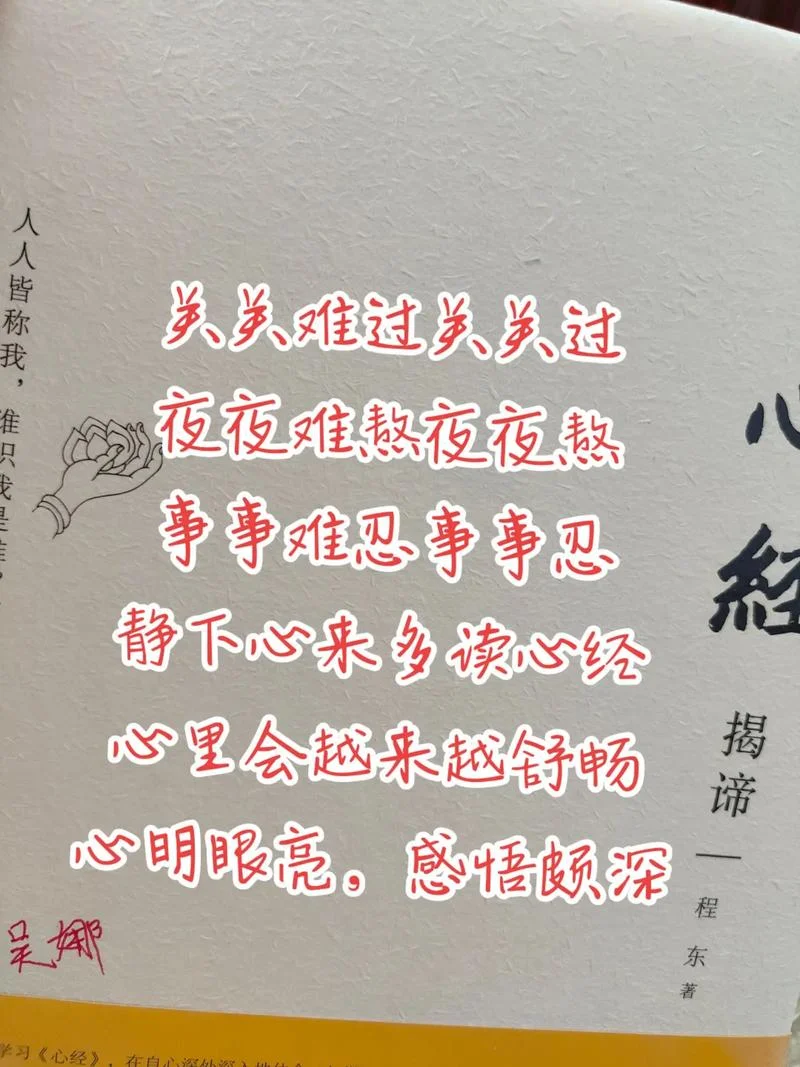 人人皆称我，谁识我是谁？
关关难过关关过
夜夜难熬夜夜熬
事事难忍事事忍
静下心来多读心经
心里会越来越舒畅
心明眼亮，感悟颇深
心經
揭谛
程东 著
吴娜
学习《心经》，在自心深处深入地体会